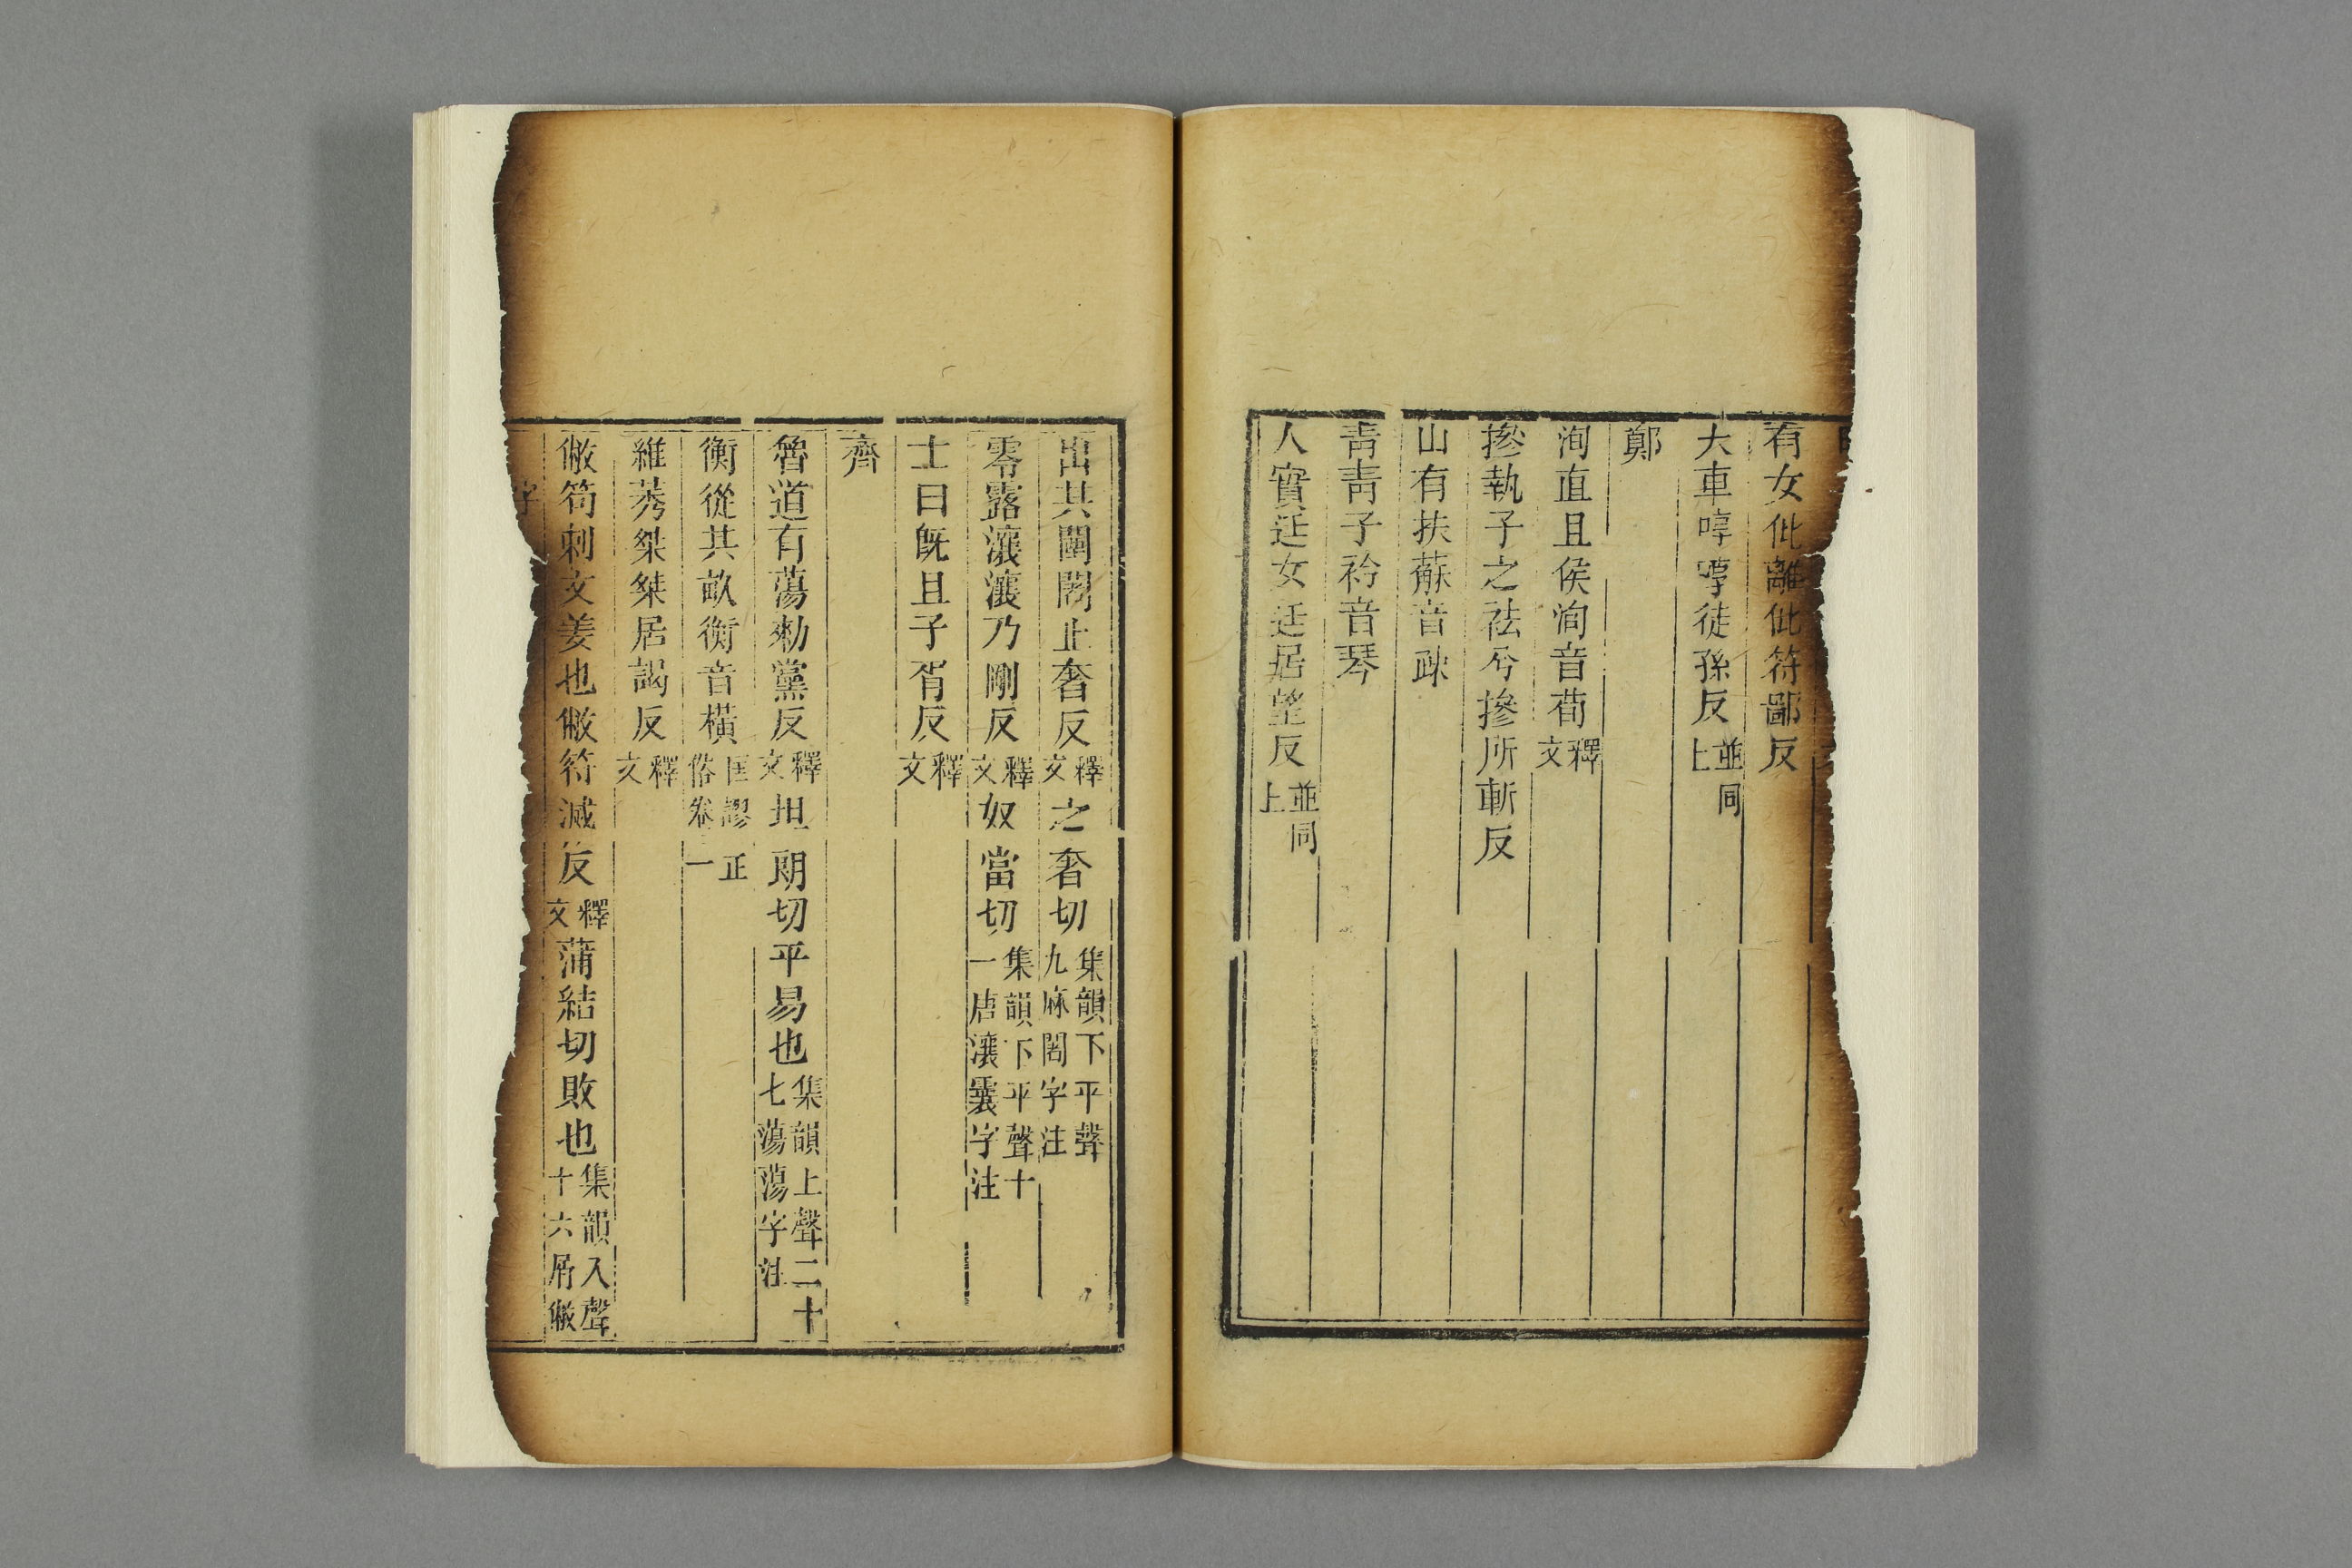 有女仳離仳符鄙反
大車啍啍徒孫反並同上
鄭
洵直且侯洵音荀釋文
摻執子之袪兮摻所斬反
山有扶蘇音疎
靑靑子衿音琴
人實迋女迋居望反並同上
出其闉闍止奢反釋文之奢切集韻下平聲九麻闍字注
零露瀼瀼乃剛反釋文奴當切集韻下平聲十一唐瀼囊字注
士曰旣且子胥反釋文
齊
魯道有蕩勑黨反釋文坦朗切平易也集韻上聲二十七蕩蕩字注
衡從其畝衡音橫匡謬正俗卷一
維莠桀桀居謁反釋文
敝笱刺文姜也敝符滅反釋文蒲結切敗也集韻入聲十六屑敝
字